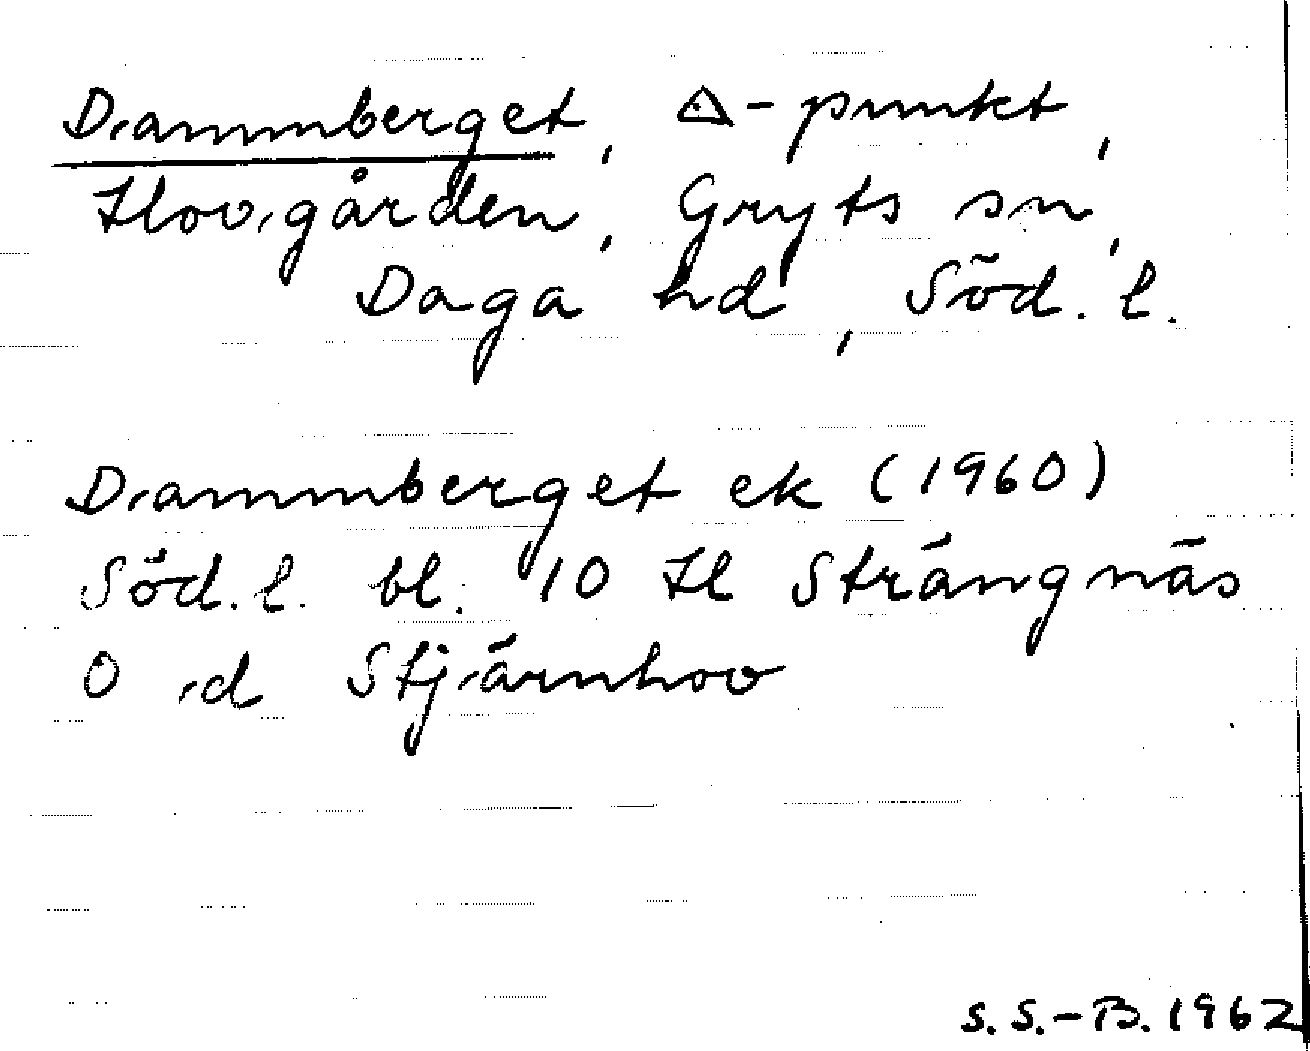 Dammberget, △-punkt,
Hovgården, Gryts sn,
Daga hd, Söd. l.
Dammberget ek (1960)
Söd. l. bl. 10 H Strängnäs
0 d Stjärnhov
S. S.-B. 1962